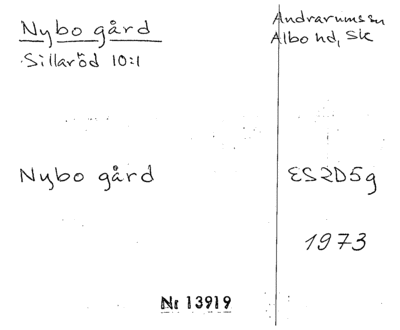 Nybo gård
Sillaröd 10:1
Andrarums sn
Albo hd, Sk
Nybo gård
ES2D5g
1973
Nr 13919